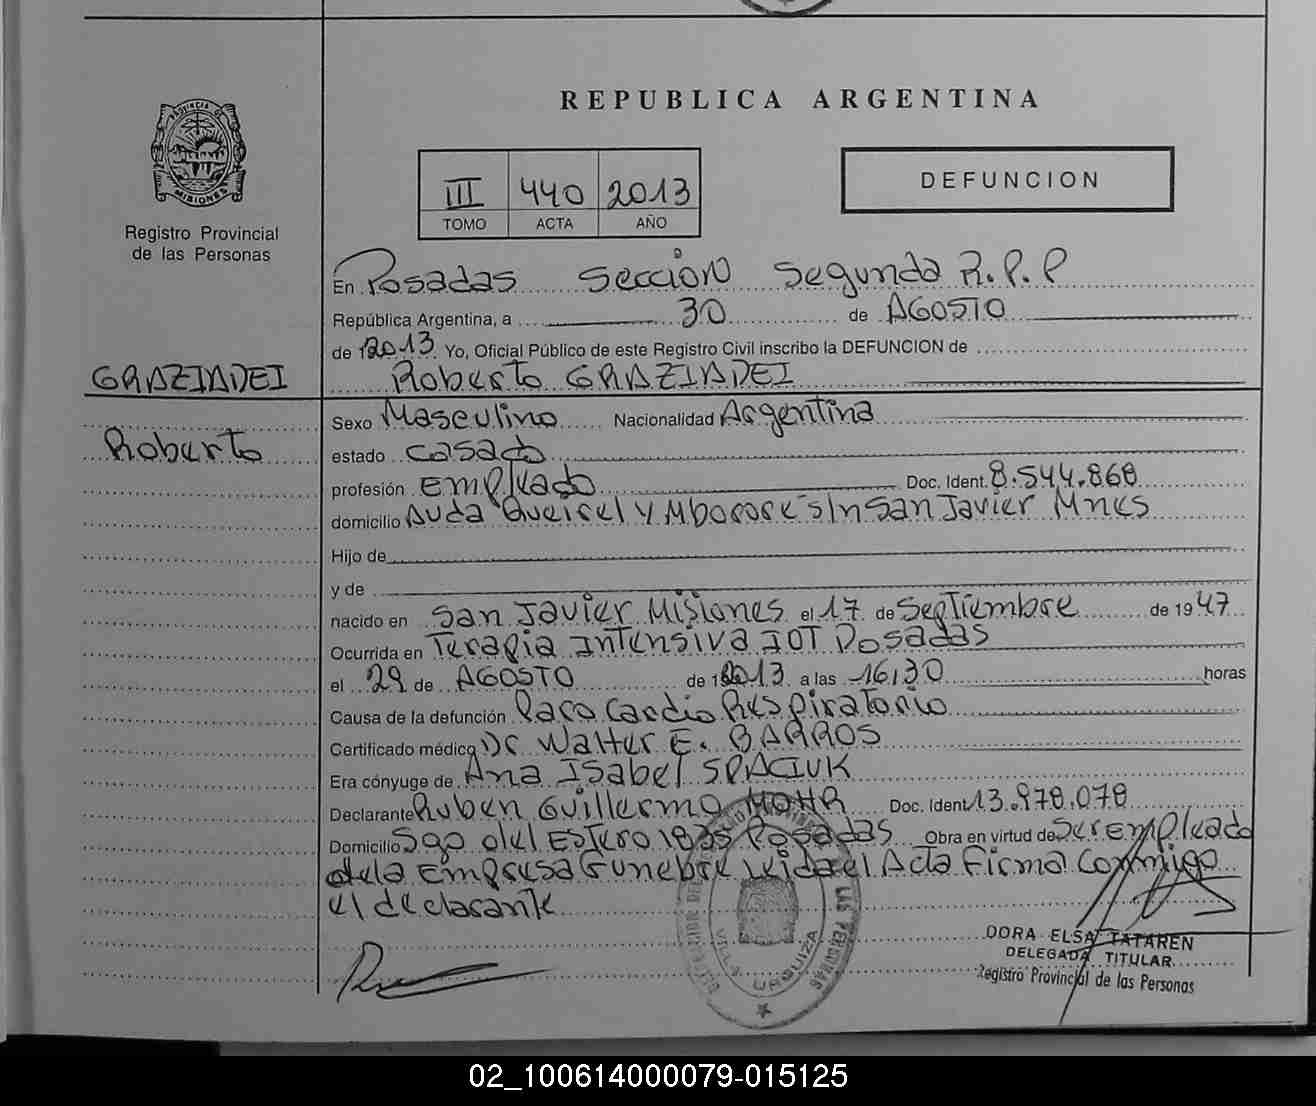 REPUBLICA ARGENTINA
PROVINCIA DE
MISIONES
Registro Provincial
de las Personas
III 440 2013
TOMO ACTA AÑO
DEFUNCION
En Posadas Sección Segunda R.P.P
República Argentina, a 30 de AGOSTO
de 2013 Yo, Oficial Público de este Registro Civil inscribo la DEFUNCION de
GRAZIADEI Roberto GRAZIADEI
Sexo Masculino Nacionalidad Argentina
Roberto
estado casado
profesión Empleado Doc. Ident. 8.544.868
domicilio Avda Queirel y Mborore s/n San Javier Mnes
Hijo de
y de
nacido en San Javier Misiones el 17 de Septiembre de 1947
Ocurrida en Terapia Intensiva IOT Posadas
el 29 de AGOSTO de 2013 a las 16,30 horas
Causa de la defunción Paro Cardio Respiratorio
Certificado médico Dr Walter E. BARROS
Era cónyuge de Ana Isabel SPACIUK
Declarante Ruben Guillermo MOHR Doc. Ident 13.978.078
Domicilio Sgo del Estero 1835 Posadas Obra en virtud de Ser Empleado
de la Empresa Funebre Leida el Acta Firma Conmigo
el declarante
LAS PERSONAS
VILLA URQUIZA
DORA ELSA TATAREN
DELEGADA TITULAR
Registro Provincial de las Personas
02_100614000079-015125